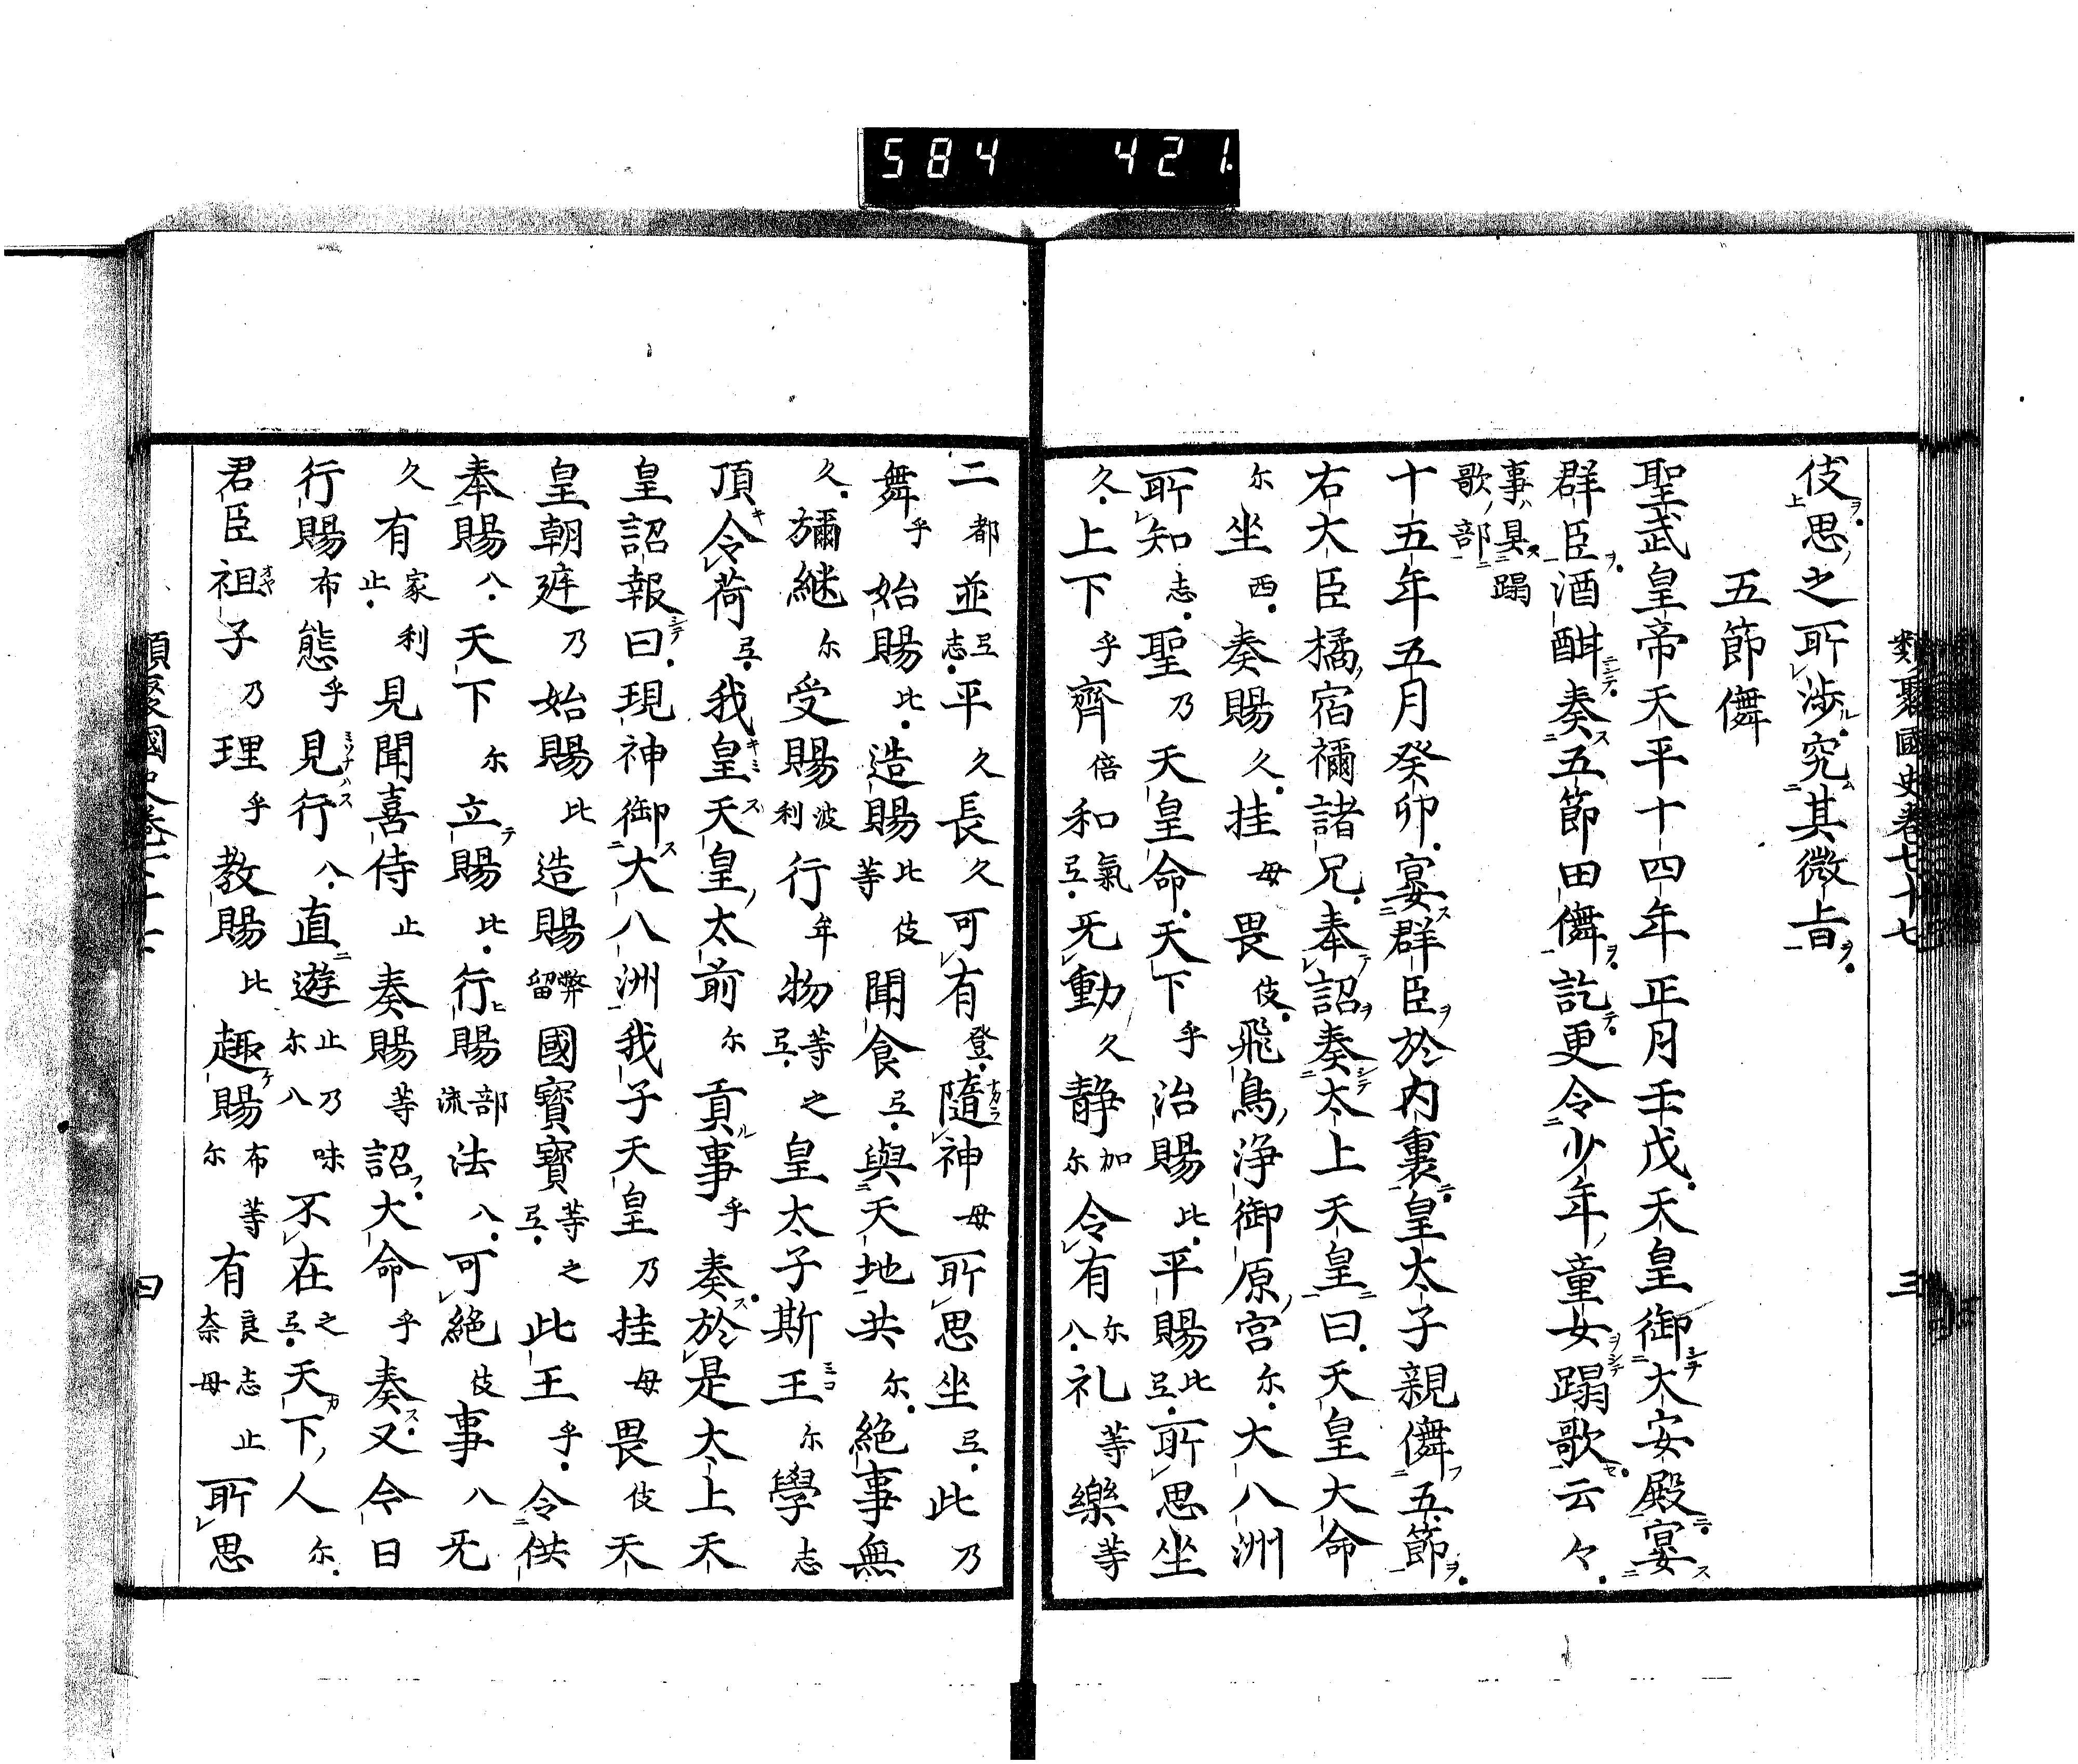 584 421
類聚國史卷七十七 三
伎思之所渉究其微旨
五節儛
聖武皇帝天平十四年正月壬戌天皇御大安殿宴
群臣酒酣奏五節田儛訖更令少年童女蹋歌云々
事具蹋歌部
十五年五月癸卯宴群臣於内裏皇太子親儛五節
右大臣橘宿禰諸兄奉詔奏太上天皇曰天皇大命
尓坐西奏賜久挂母畏伎飛鳥浄御原宮尓大八洲
所知志聖乃天皇命天下乎治賜比平賜比弖所思坐
久上下乎齊倍和氣弖无動久静加尓令有尓八礼等樂等
二都並弖志平久長久可有登隨神母所思坐弖此乃
舞乎始賜比造賜比等伎聞食弖與天地共尓絶事無
久彌継尓受賜波利行牟物等弖之皇太子斯王尓學志
頂令荷弖我皇天皇太前尓貢事乎奏於是太上天
皇詔報曰現神御大八洲我子天皇乃挂母畏伎天
皇朝逓乃始賜比造賜幣留國寳寳等弖之此王乎令供
奉賜八天下尓立賜比行賜部流法八可絶伎事八无
久有家利止見聞喜侍止奏賜等詔大命乎奏又今日
行賜布態乎見行八直遊止乃味尓八不在之弖天下人尓
君臣祖子乃理乎教賜比趣賜布等尓有良志奈母止所思
類聚國史卷七十七 四